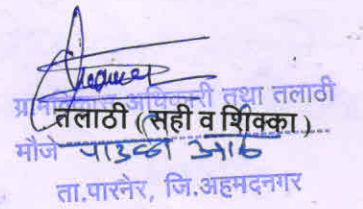 ग्रामविकास अधिकारी तथा तलाठी
तलाठी (सही व शिक्का)
मौजे पाडळी आळे
ता.पारनेर, जि.अहमदनगर